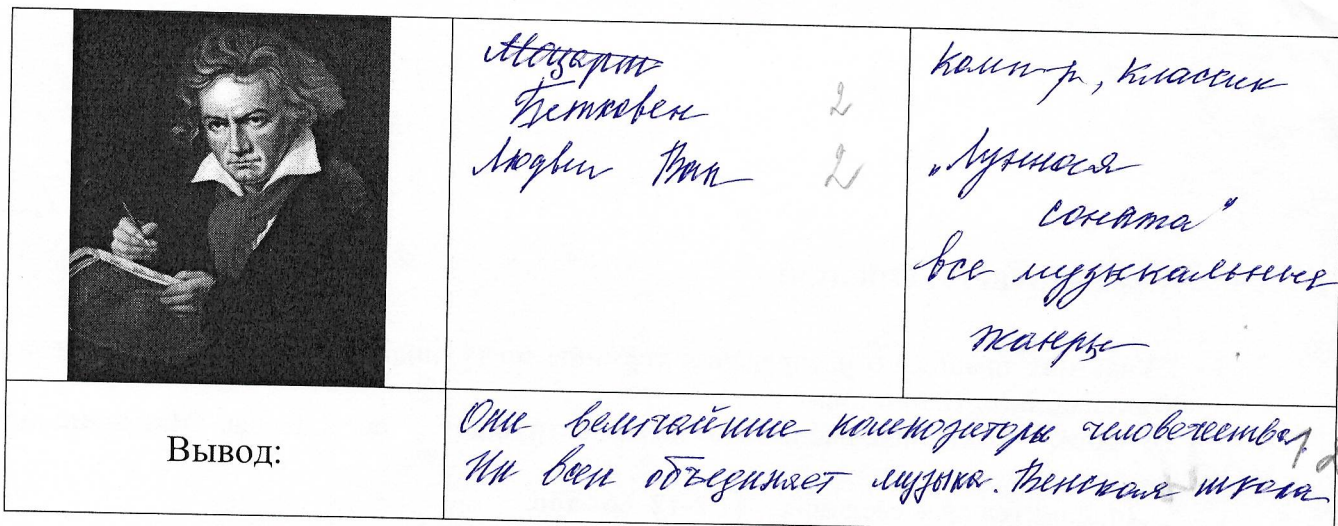 Моцарт
Бетховен 2
Людвиг Ван 2
Комп-р, классик
„Лунная
соната"
все музыкальные
жанры
Вывод:
Они величайшие композиторы человечества 1
Их всех объединяет музыка. Венская школа